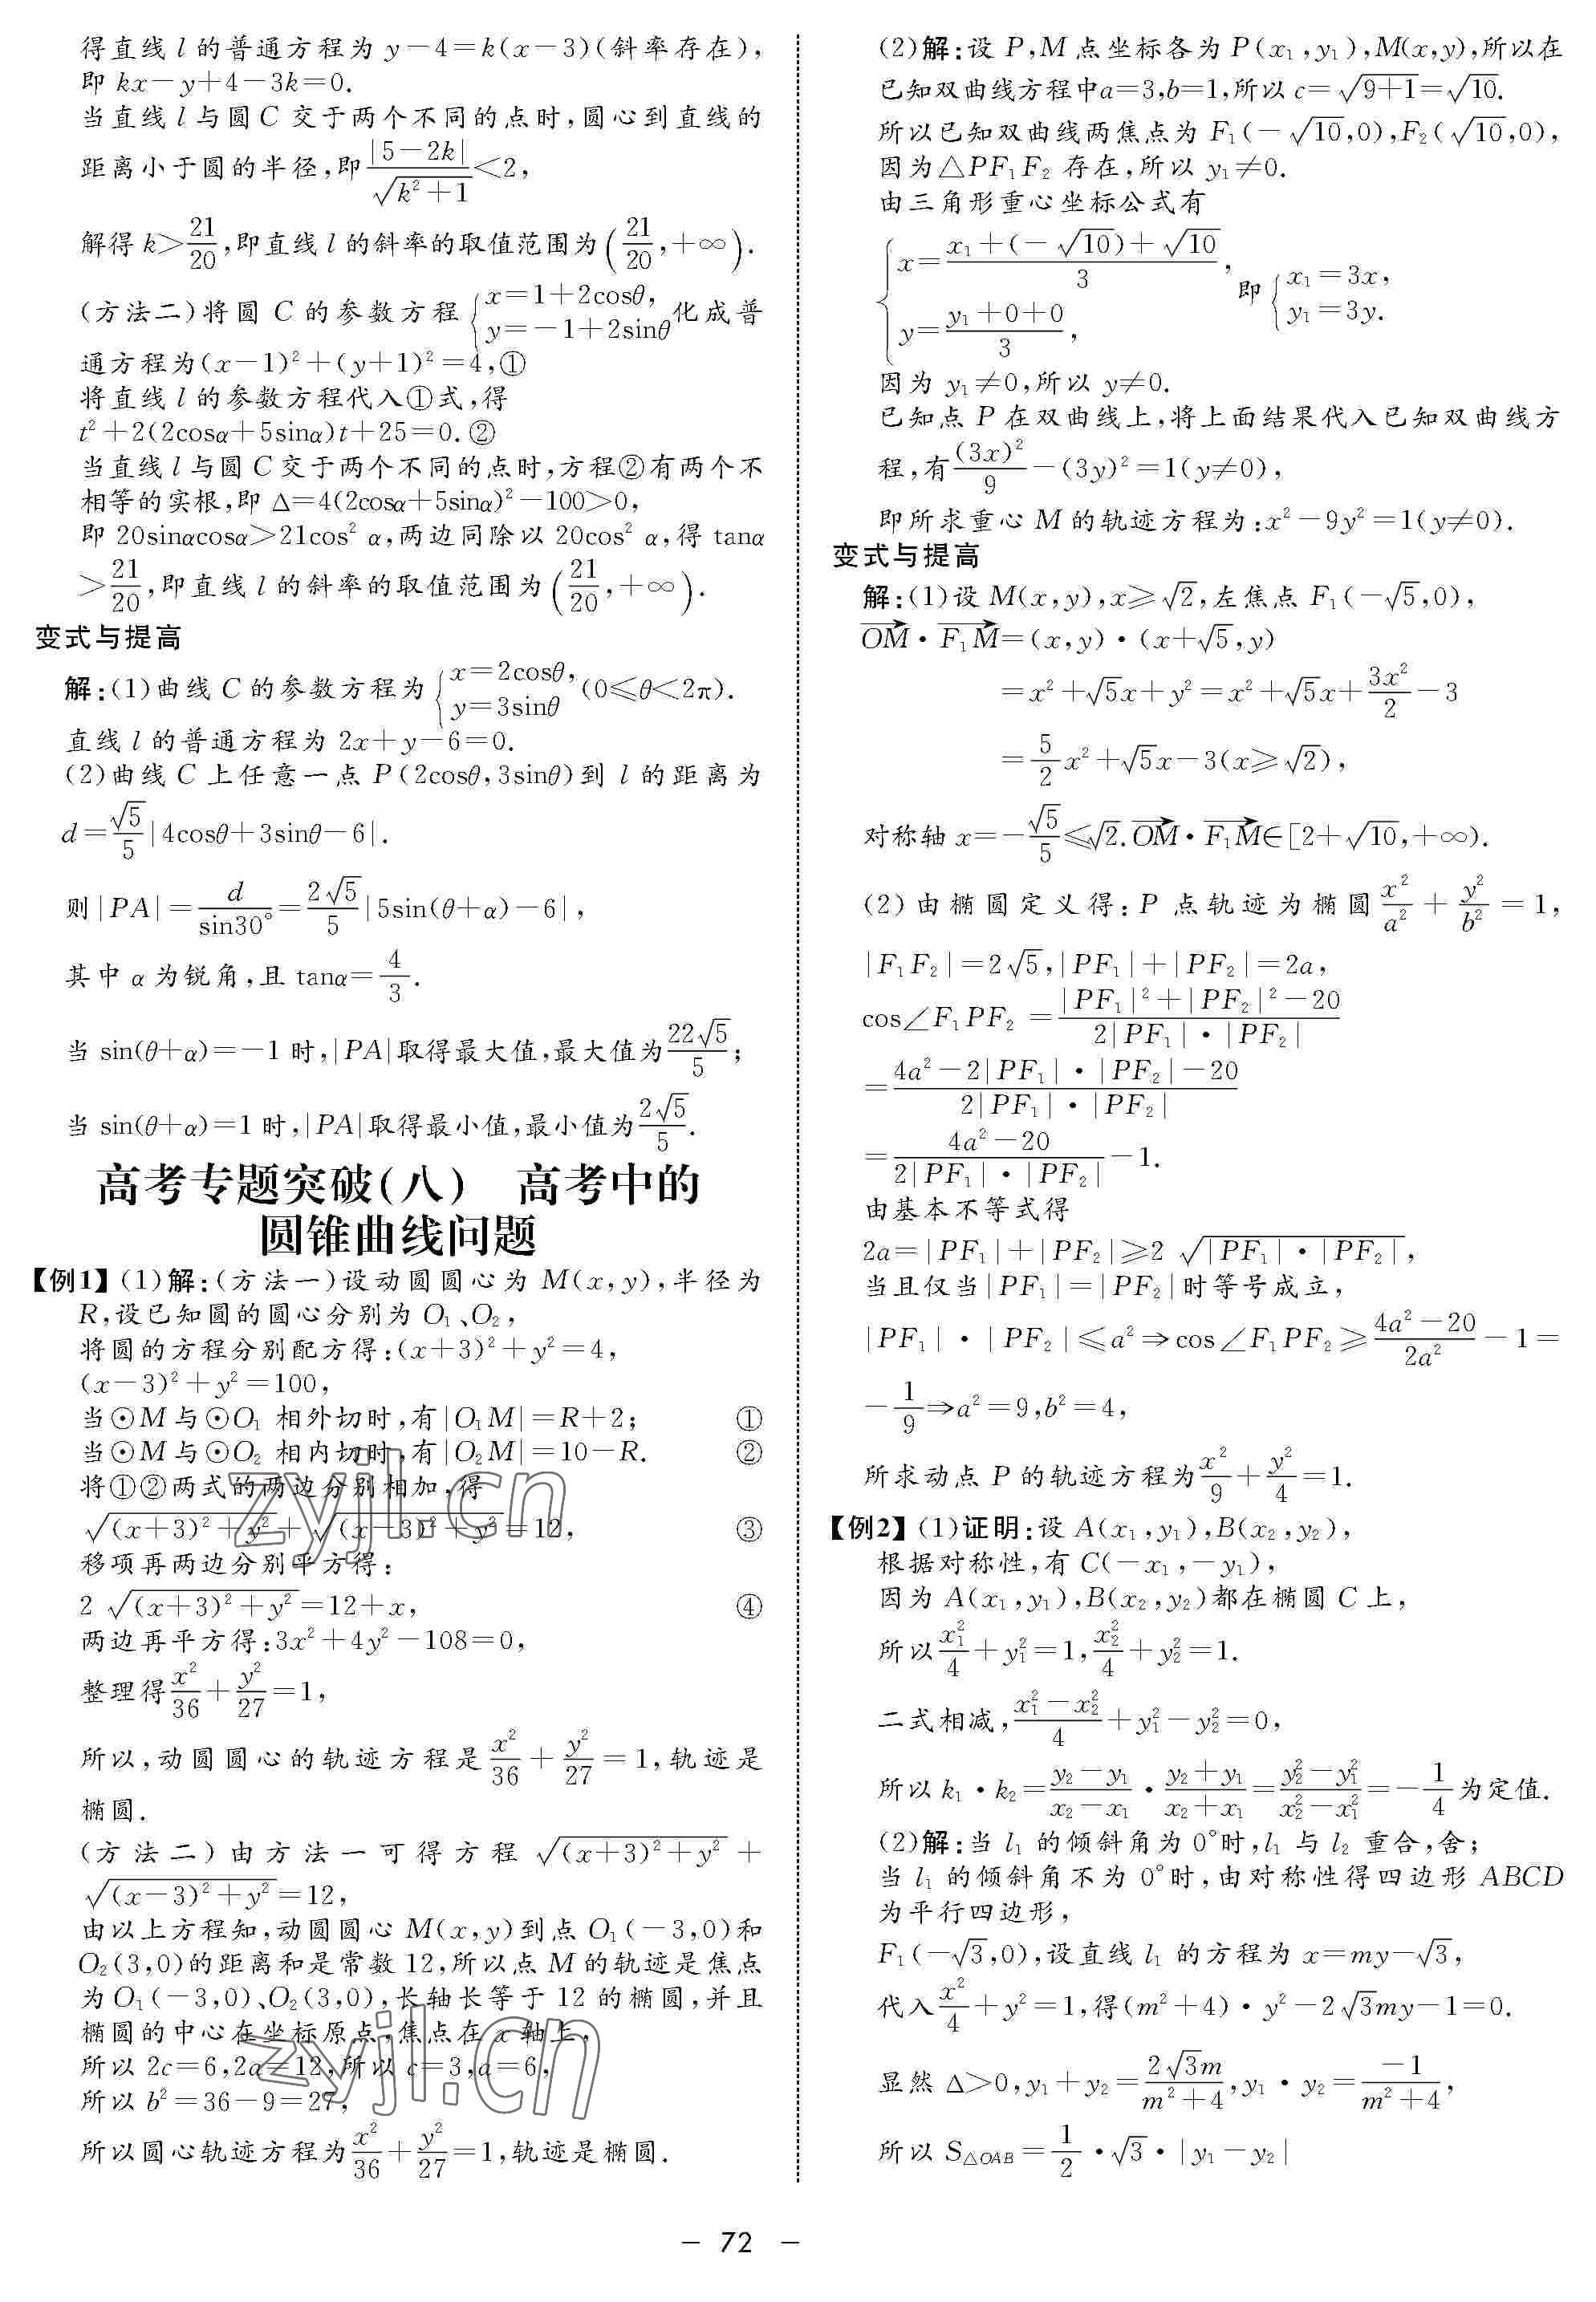 得直线 l 的普通方程为 y-4=k(x-3)(斜率存在),
即 kx-y+4-3k=0.
当直线 l 与圆 C 交于两个不同的点时,圆心到直线的
距离小于圆的半径,即|5-2k|/√(k²+1)<2,
解得 k>21/20,即直线 l 的斜率的取值范围为(21/20,+∞).
(方法二)将圆 C 的参数方程{x=1+2cosθ, y=-1+2sinθ化成普
通方程为(x-1)²+(y+1)²=4,①
将直线 l 的参数方程代入①式,得
t²+2(2cosα+5sinα)t+25=0.②
当直线 l 与圆 C 交于两个不同的点时,方程②有两个不
相等的实根,即 Δ=4(2cosα+5sinα)²-100>0,
即 20sinαcosα>21cos² α,两边同除以 20cos² α,得 tanα
>21/20,即直线 l 的斜率的取值范围为(21/20,+∞).
变式与提高
解:(1)曲线 C 的参数方程为{x=2cosθ, y=3sinθ(0≤θ<2π).
直线 l 的普通方程为 2x+y-6=0.
(2)曲线 C 上任意一点 P(2cosθ,3sinθ)到 l 的距离为
d=√5/5|4cosθ+3sinθ-6|.
则|PA|=d/sin30°=2√5/5|5sin(θ+α)-6|,
其中 α 为锐角,且 tanα=4/3.
当 sin(θ+α)=-1 时,|PA|取得最大值,最大值为22√5/5;
当 sin(θ+α)=1 时,|PA|取得最小值,最小值为2√5/5.
高考专题突破(八) 高考中的
圆锥曲线问题
【例1】(1)解:(方法一)设动圆圆心为 M(x,y),半径为
R,设已知圆的圆心分别为 O₁、O₂,
将圆的方程分别配方得:(x+3)²+y²=4,
(x-3)²+y²=100,
当⊙M 与⊙O₁ 相外切时,有|O₁M|=R+2; ①
当⊙M 与⊙O₂ 相内切时,有|O₂M|=10-R. ②
将①②两式的两边分别相加,得
√((x+3)²+y²)+√((x-3)²+y²)=12, ③
移项再两边分别平方得:
2√((x+3)²+y²)=12+x, ④
两边再平方得:3x²+4y²-108=0,
整理得x²/36+y²/27=1,
所以,动圆圆心的轨迹方程是x²/36+y²/27=1,轨迹是
椭圆.
(方法二)由方法一可得方程√((x+3)²+y²)+
√((x-3)²+y²)=12,
由以上方程知,动圆圆心 M(x,y)到点 O₁(-3,0)和
O₂(3,0)的距离和是常数 12,所以点 M 的轨迹是焦点
为 O₁(-3,0)、O₂(3,0),长轴长等于 12 的椭圆,并且
椭圆的中心在坐标原点,焦点在 x 轴上,
所以 2c=6,2a=12,所以 c=3,a=6,
所以 b²=36-9=27,
所以圆心轨迹方程为x²/36+y²/27=1,轨迹是椭圆.
(2)解:设 P,M 点坐标各为 P(x₁,y₁),M(x,y),所以在
已知双曲线方程中a=3,b=1,所以 c=√(9+1)=√10.
所以已知双曲线两焦点为 F₁(-√10,0),F₂(√10,0),
因为△PF₁F₂ 存在,所以 y₁≠0.
由三角形重心坐标公式有
{x=(x₁+(-√10)+√10)/3, y=(y₁+0+0)/3, 即{x₁=3x, y₁=3y.
因为 y₁≠0,所以 y≠0.
已知点 P 在双曲线上,将上面结果代入已知双曲线方
程,有(3x)²/9-(3y)²=1(y≠0),
即所求重心 M 的轨迹方程为:x²-9y²=1(y≠0).
变式与提高
解:(1)设 M(x,y),x≥√2,左焦点 F₁(-√5,0),
OM→·F₁M→=(x,y)·(x+√5,y)
=x²+√5x+y²=x²+√5x+3x²/2-3
=5/2x²+√5x-3(x≥√2),
对称轴 x=-√5/5≤√2.OM→·F₁M→∈[2+√10,+∞).
(2)由椭圆定义得:P 点轨迹为椭圆x²/a²+y²/b²=1,
|F₁F₂|=2√5,|PF₁|+|PF₂|=2a,
cos∠F₁PF₂=(|PF₁|²+|PF₂|²-20)/(2|PF₁|·|PF₂|)
=(4a²-2|PF₁|·|PF₂|-20)/(2|PF₁|·|PF₂|)
=(4a²-20)/(2|PF₁|·|PF₂|)-1.
由基本不等式得
2a=|PF₁|+|PF₂|≥2√(|PF₁|·|PF₂|),
当且仅当|PF₁|=|PF₂|时等号成立,
|PF₁|·|PF₂|≤a²⇒cos∠F₁PF₂≥(4a²-20)/2a²-1=
-1/9⇒a²=9,b²=4,
所求动点 P 的轨迹方程为x²/9+y²/4=1.
【例2】(1)证明:设 A(x₁,y₁),B(x₂,y₂),
根据对称性,有 C(-x₁,-y₁),
因为 A(x₁,y₁),B(x₂,y₂)都在椭圆 C 上,
所以x₁²/4+y₁²=1,x₂²/4+y₂²=1.
二式相减,(x₁²-x₂²)/4+y₁²-y₂²=0,
所以 k₁·k₂=(y₂-y₁)/(x₂-x₁)·(y₂+y₁)/(x₂+x₁)=(y₂²-y₁²)/(x₂²-x₁²)=-1/4为定值.
(2)解:当 l₁ 的倾斜角为 0°时,l₁ 与 l₂ 重合,舍;
当 l₁ 的倾斜角不为 0°时,由对称性得四边形 ABCD
为平行四边形,
F₁(-√3,0),设直线 l₁ 的方程为 x=my-√3,
代入x²/4+y²=1,得(m²+4)·y²-2√3my-1=0.
显然 Δ>0,y₁+y₂=2√3m/(m²+4),y₁·y₂=-1/(m²+4),
所以 S△OAB=1/2·√3·|y₁-y₂|
- 72 -
zyjl.cn
zyjl.cn